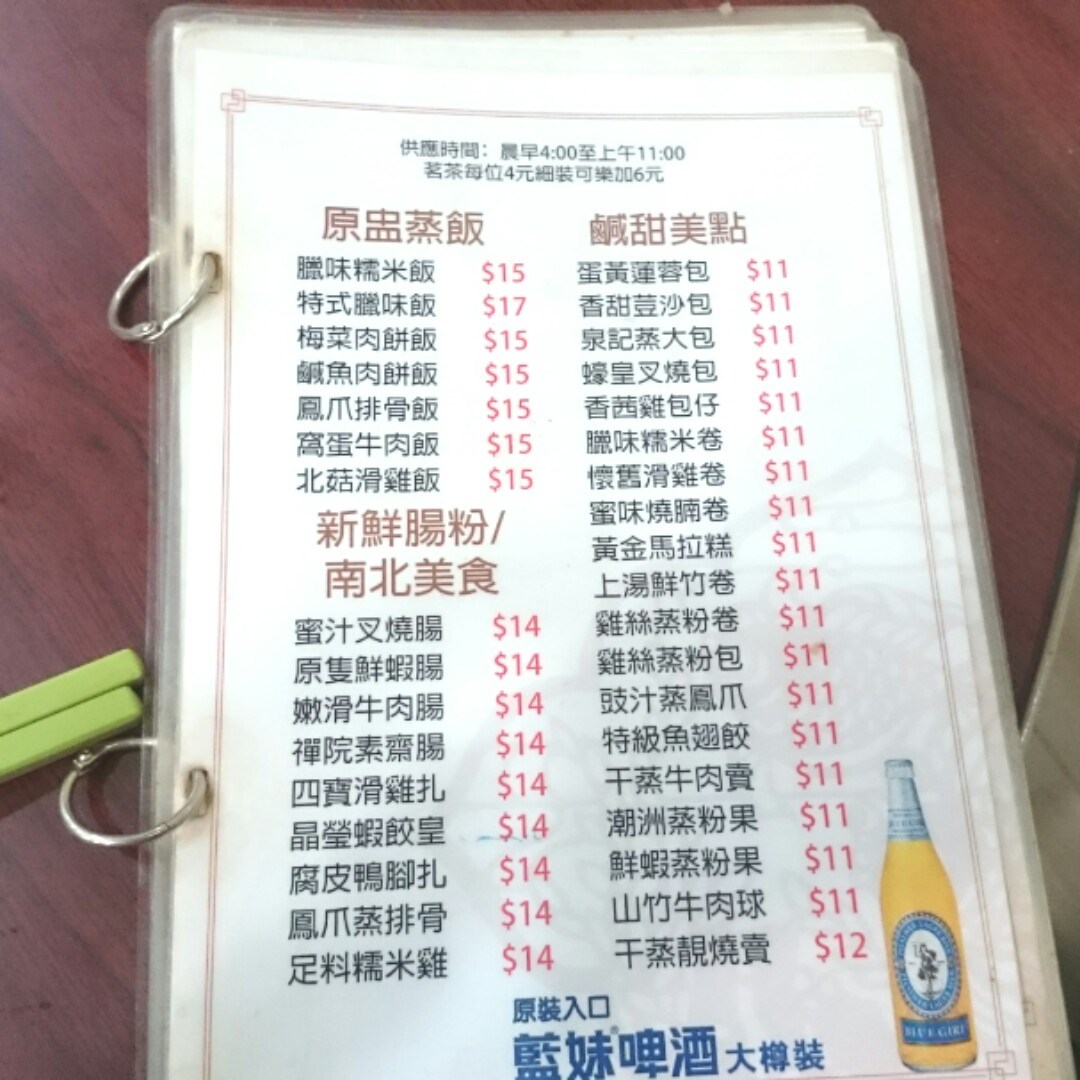 供應時間：晨早4:00至上午11:00
茗茶每位4元細裝可樂加6元
原盅蒸飯
臘味糯米飯 $15
特式臘味飯 $17
梅菜肉餅飯 $15
鹹魚肉餅飯 $15
鳳爪排骨飯 $15
窩蛋牛肉飯 $15
北菇滑雞飯 $15
新鮮腸粉/
南北美食
蜜汁叉燒腸 $14
原隻鮮蝦腸 $14
嫩滑牛肉腸 $14
禪院素齋腸 $14
四寶滑雞扎 $14
晶瑩蝦餃皇 $14
腐皮鴨腳扎 $14
鳳爪蒸排骨 $14
足料糯米雞 $14
鹹甜美點
蛋黃蓮蓉包 $11
香甜荳沙包 $11
泉記蒸大包 $11
蠔皇叉燒包 $11
香茜雞包仔 $11
臘味糯米卷 $11
懷舊滑雞卷 $11
蜜味燒腩卷 $11
黃金馬拉糕 $11
上湯鮮竹卷 $11
雞絲蒸粉卷 $11
雞絲蒸粉包 $11
豉汁蒸鳳爪 $11
特級魚翅餃 $11
干蒸牛肉賣 $11
潮洲蒸粉果 $11
鮮蝦蒸粉果 $11
山竹牛肉球 $11
干蒸靚燒賣 $12
原裝入口
藍妹®啤酒 大樽裝
BLUE GIRL